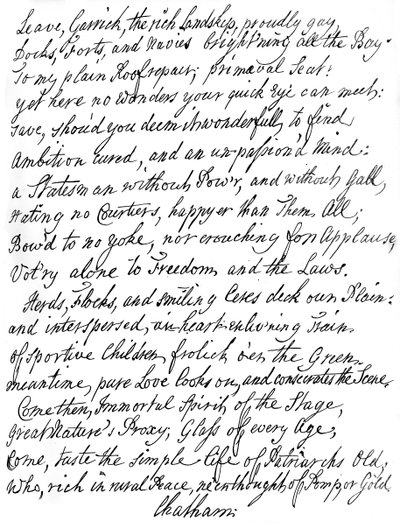 Leave, Garrick, the rich Landskip, proudly gay,
Docks, Forts, and Navies bright'ning all the Bay:
To my plain Roof repair; primæval Seat!
Yet here no wonders your quick Eye can meet:
save, shou'd you deem it wonderfull, to find
Ambition cured, and an un-passion'd Mind:
a Statesman without Pow'r, and without Gall,
Hating no Courtiers, happyer than Them All;
Bow'd to no yoke, nor crouching for Applause,
Vot'ry alone to Freedom, and the Laws.
Herds, Flocks, and smiling Ceres deck our Plain:
and interspersed, an heart-enliv'ning Train
of sportive Children, frolick o'er the Green
meantime, pure Love looks on, and consecrates the Scene.
Come then, Immortal Spirit of the Stage,
Great Nature's Proxy, Glass of every Age,
Come, taste the simple Life of Patriarchs Old,
Who, rich in rural Peace, ne'er thought of Pomp or Gold.
Chatham.